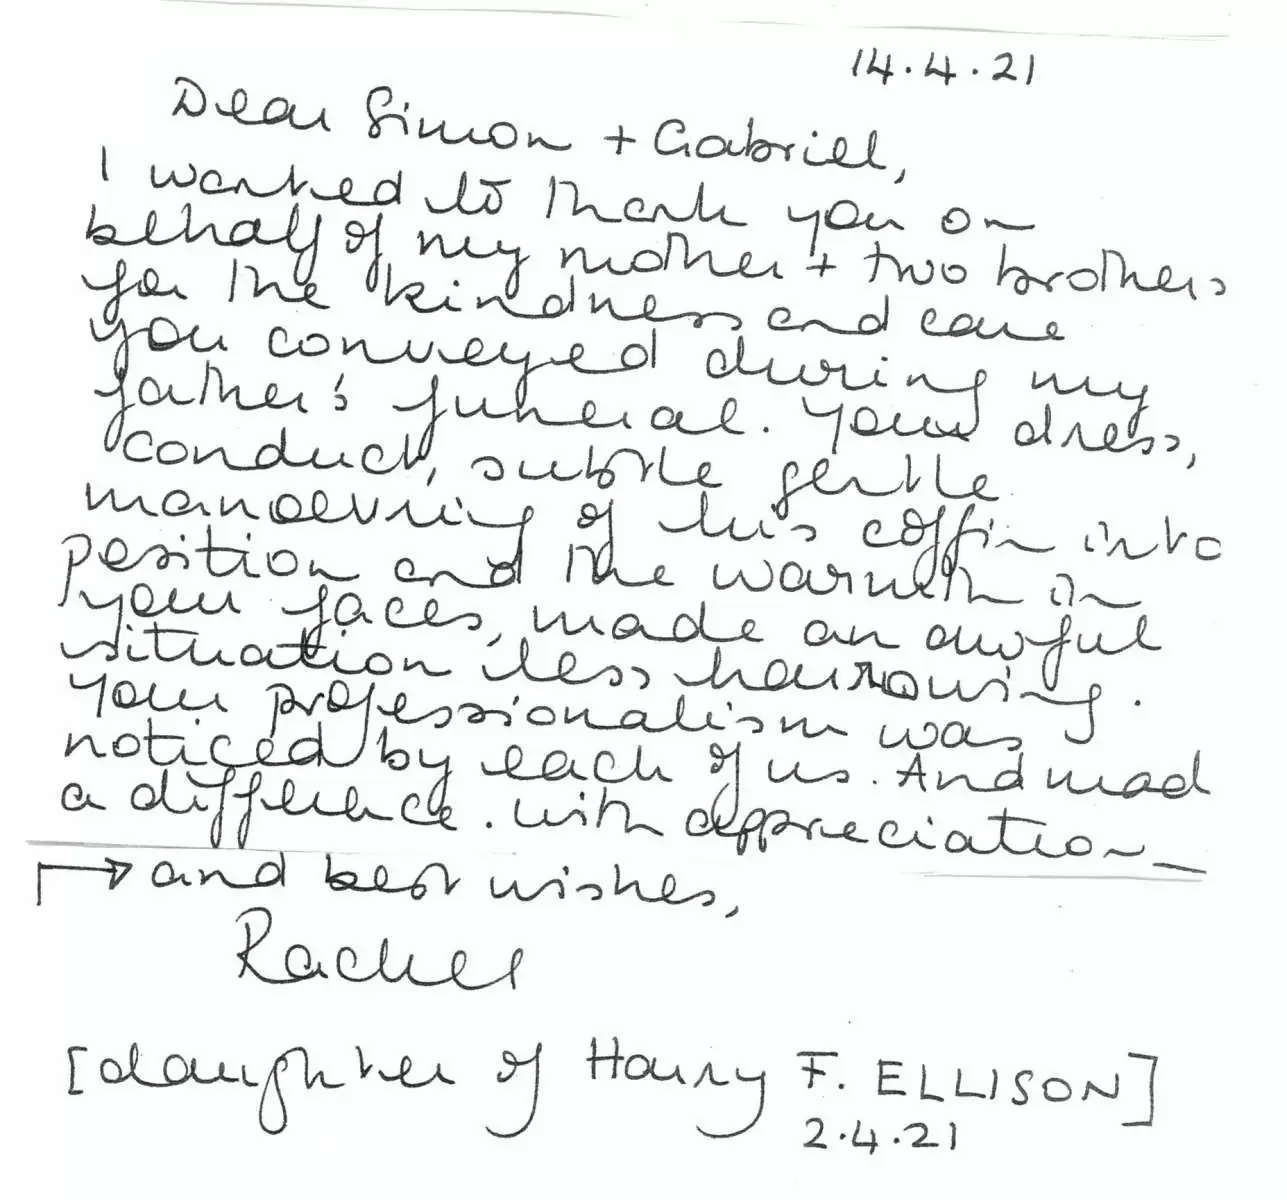 14.4.21
Dear Simon + Gabriel,
I wanted to thank you on
behalf of my mother + two brothers
for the kindness and care
you conveyed during my
father's funeral. Your dress,
conduct, subtle gentle
manoevring of his coffin into
position and the warmth in
your faces, made an awful
situation less harrowing.
Your professionalism was
noticed by each of us. And mad
a difference. With appreciation_
→ and best wishes,
Rachel
[daughter of Harry F. ELLISON]
2.4.21